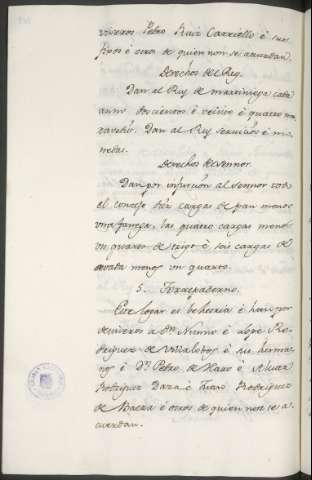 viseros Pedro Ruiz Carriello é sus
fijos é otros de quien non se acuerdan.
Derechos del Rey.
Dan al Rey de martiniega cada
anno doscientos é veinte é quatro ma
ravedis. Dan al Rey servicios é mo
nedas.
Derechos del sennor.
Dan por infurcion al sennor todo
el concejo diez cargas de pan menos
una fanega, las quatro cargas menos
un quarto de trigo é seis cargas de
cevada menos un quarto.
5. Torrepadierno.
Este logar es behetria é han por
deviseros a Dn. Nunno é Lope Ro
driguez de Villalobos é sus herma
nos é Dn. Pedro de Haro é Alvar
Rodriguez Daza é Rodriguez
de Baeza é otros de quien non se a
cuerdan.